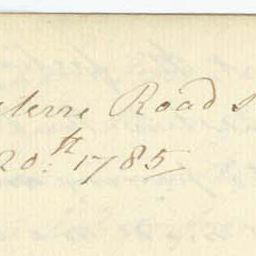 terre Road s
20.th 1785